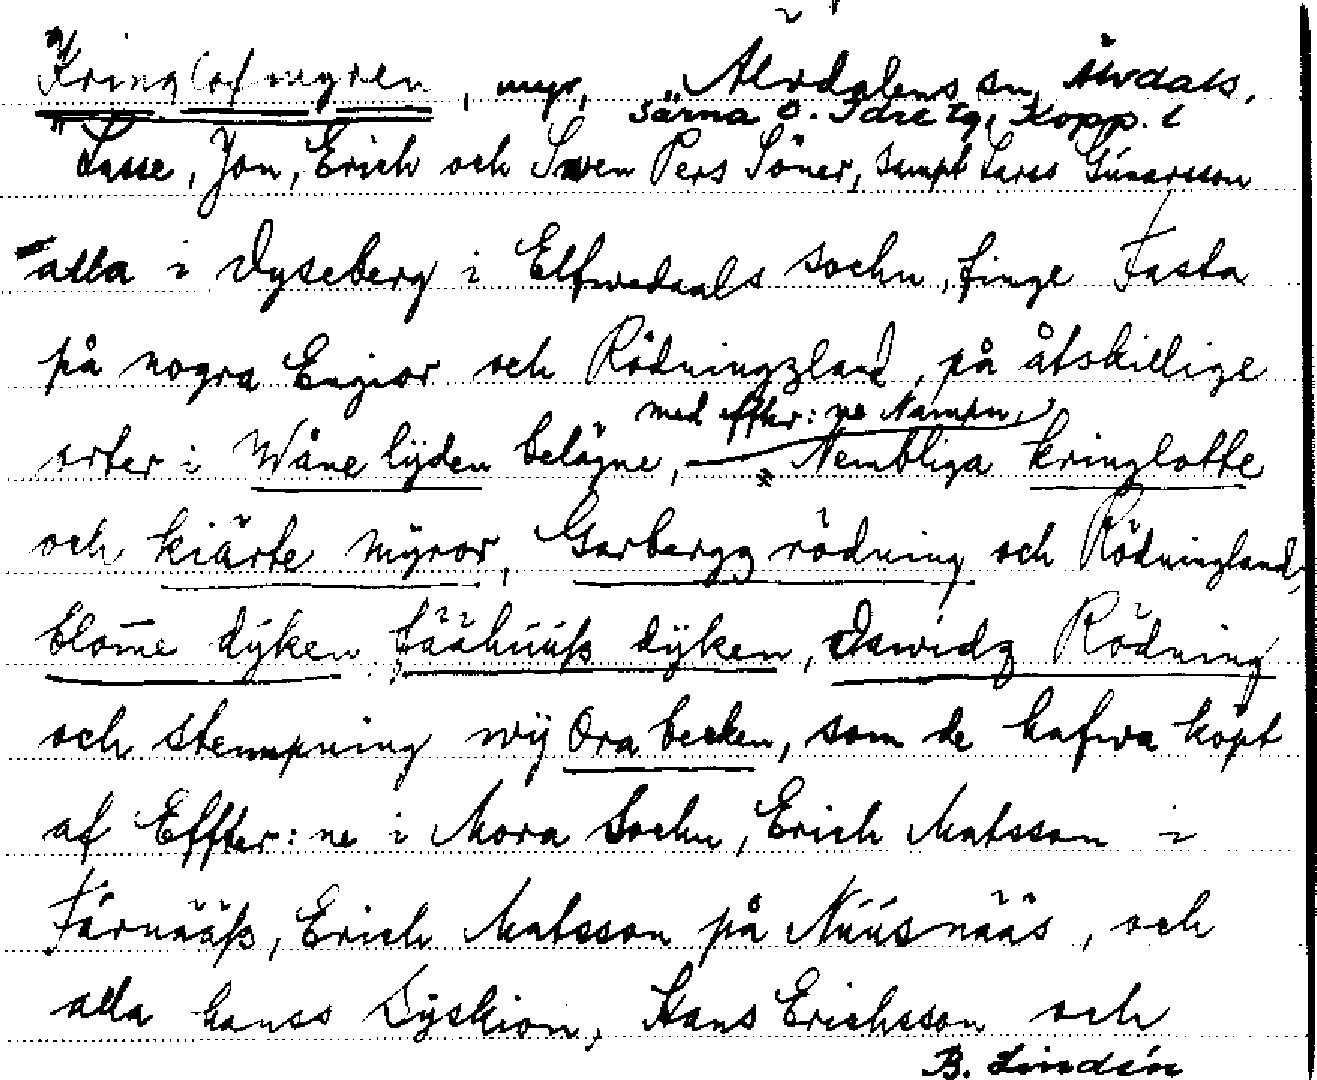 Kringlofmyren, myr, Älvdalens sn, Älvdals,
Särna o. Idre tg, Kopp. l
"Lasse, Jon, Erich och Swen Pers Söner, sampt Lars Gunarsson
alla i Dyseberg i Elfwedaals sochn, finge Fasta
på nogra Engior och Rödningzland, på åtskillige
med effter: ne Nampn,
orter i Wåne lijden belägne, Nembliga kringlotte
och kiärte Myror, Garbergz rödning och Rödningland,
blom̄e dyken fäähuuß dyken, Iswidz Rödning
och stempning wij Ora becken, som de hafwa köpt
af Effter: ne i Mora Sochn, Erich Matsson i
Färnääß, Erich Matsson på Nuusnääs, och
alla hanss Syskion, Hans Erichsson och
B. Lindén